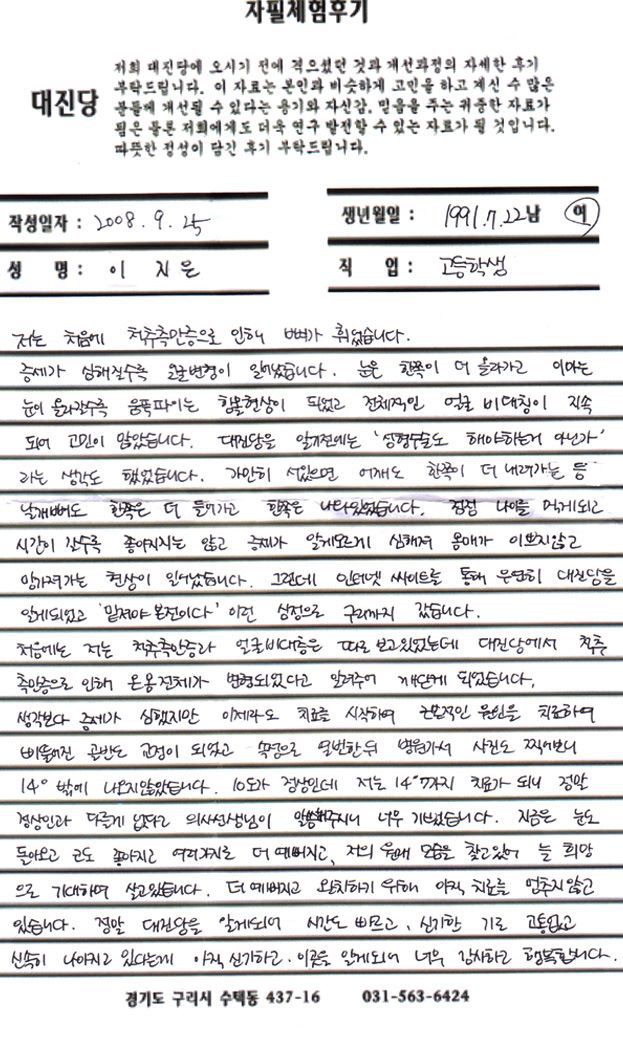 자필체험후기
대진당
저희 대진당에 오시기 전에 겪으셨던 것과 개선과정의 자세한 후기
부탁드립니다. 이 자료는 본인과 비슷하게 고민을 하고 계신 수 많은
분들께 개선될 수 있다는 용기와 자신감, 믿음을 주는 귀중한 자료가
됨은 물론 저희에게도 더욱 연구 발전할 수 있는 자료가 될 것입니다.
따뜻한 정성이 담긴 후기 부탁드립니다.
작성일자 : 2008. 9. 25
생년월일 : 1991.7.22 남 여
성 명 : 이 지은
직 업 : 고등학생
저는 처음에 척추측만증으로 인해 뼈가 휘었습니다.
증세가 심해질수록 얼굴변형이 일어났습니다. 눈은 한쪽이 더 올라가고 이마는
눈이 올라갈수록 움푹파이는 함몰현상이 되었고 전체적인 얼굴 비대칭이 지속
되어 고민이 많았습니다. 대진당을 알기전에는 '성형수술도 해야하는거 아닌가'
라는 생각도 했었습니다. 가만히 서있으면 어깨도 한쪽이 더 내려가는 등
날개뼈도 한쪽은 더 들어가고 한쪽은 나와있었습니다. 점점 나이를 먹게되고
시간이 갈수록 좋아지지는 않고 증세가 알게모르게 심해져 몸매가 이쁘지않고
망가져가는 현상이 일어났습니다. 그런데 인터넷 싸이트를 통해 우연히 대진당을
알게되었고 '밑져야 본전이다' 이런 심정으로 구리까지 갔습니다.
처음에는 저는 척추측만증과 얼굴비대층은 따로 보고있었는데 대진당에서 척추
측만증으로 인해 온몸전체가 변형되었다고 알려주어 깨닫게 되었습니다.
생각보다 증세가 심했지만 이제라도 치료를 시작하여 근본적인 원인을 치료하여
삐뚤어진 골반도 교정이 되었고 속성으로 열번한뒤 병원가서 사진도 찍어보니
14° 밖에 나오지않았습니다. 10도가 정상인데 저는 14°까지 치료가 되니 정말
정상인과 다를게 없다고 의사선생님이 말씀해주시니 너무 기뻤습니다. 지금은 눈도
돌아오고 코도 좋아지고 여러가지로 더 예뻐지고, 저의 원래 모습을 찾고있어 늘 희망
으로 기대하며 살고있습니다. 더 예뻐지고 완치하기 위해 아직 치료를 멈추지않고
있습니다. 정말 대진당을 알게되어 시간도 빠르고, 신기한 기로 고통없고
신속히 나아지고 있다는게 아직 신기하고. 이곳을 알게되어 너무 감사하고 행복합니다.
경기도 구리시 수택동 437-16 031-563-6424